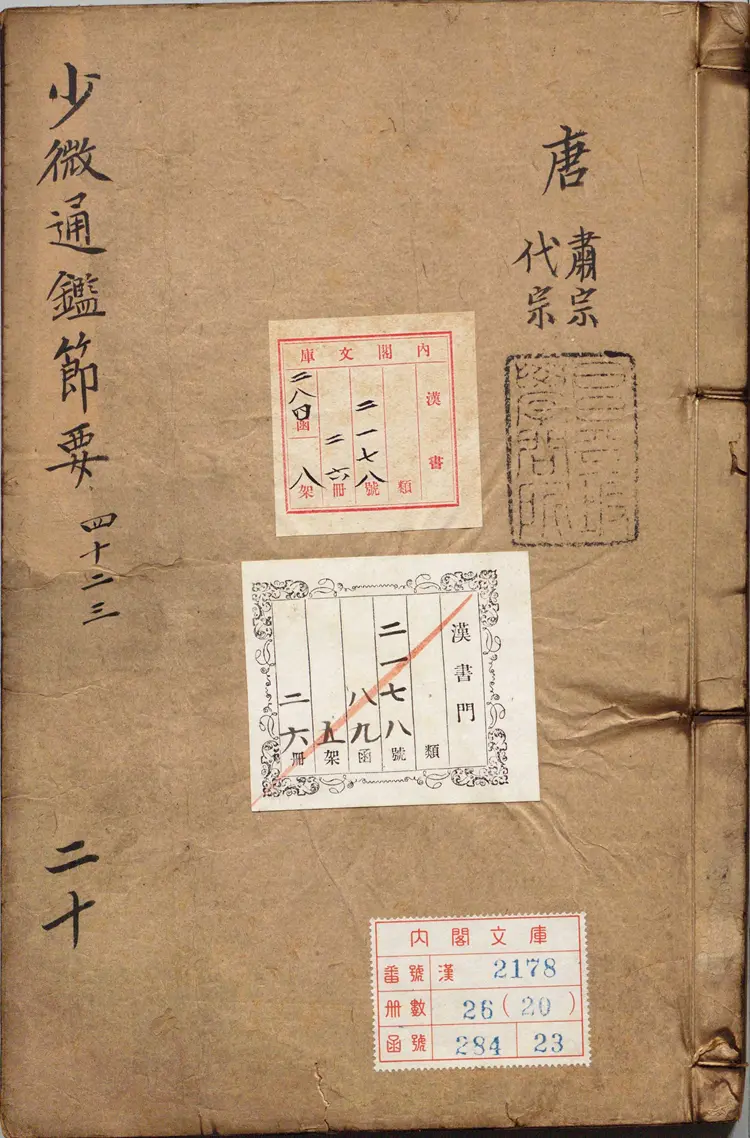 唐
肅宗
代宗
昌平坂
學問所
內閣文庫
漢書
類
二一七八號
二六冊
二八四函
八架
漢書門
類
二一七八號
八九函
五架
二六冊
内閣文庫
番號 漢 2178
册數 26(20)
函號 284 23
少微通鑑節要 四十二三
二十